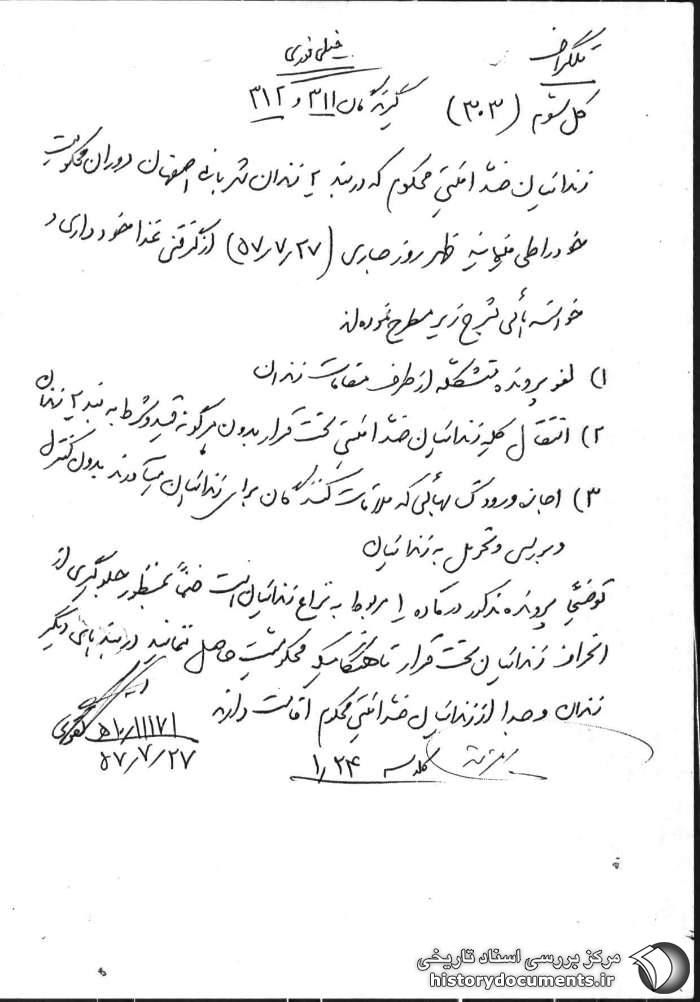 تلگراف
خیلی فوری
کل سوم (۳۰۳) گیرندگان ۳۱۱ و ۳۱۲
زندانیان ضد امنیتی محکوم که در بند ۲ زندان شهربانی اصفهان دوران محکومیت
خود را طی مینمایند ظهر روز جاری (۵۷٫۷٫۲۷) از گرفتن غذا خودداری و
خواسته‌هائی بشرح زیر مطرح نموده‌اند
۱) لغو پرونده متشکله از طرف مقامات زندان
۲) انتقال کلیه زندانیان ضد امنیتی تحت قرار بدون هرگونه قید و شرط به بند ۲ زندان
۳) اجازه ورود کتابهائی که ملاقات کنندگان برای زندانیان میآورند بدون کنترل
و بررسی و تحویل به زندانیان
توضیحاً پرونده مذکور در ماده ۱ مربوط به نزاع زندانیان است ضمناً بمنظور جلوگیری از
انحراف زندانیان تحت قرار تا هنگامیکه محکومیت حاصل ننمایند در بندهای دیگر
زندان و جدا از زندانیان ضد امنیتی محکوم اقامت دارند
۱۰٫۱۱۱۷۱ ه‍
۵۷٫۷٫۲۷
۱٫۲۴
مرکز بررسی اسناد تاریخی
historydocuments.ir